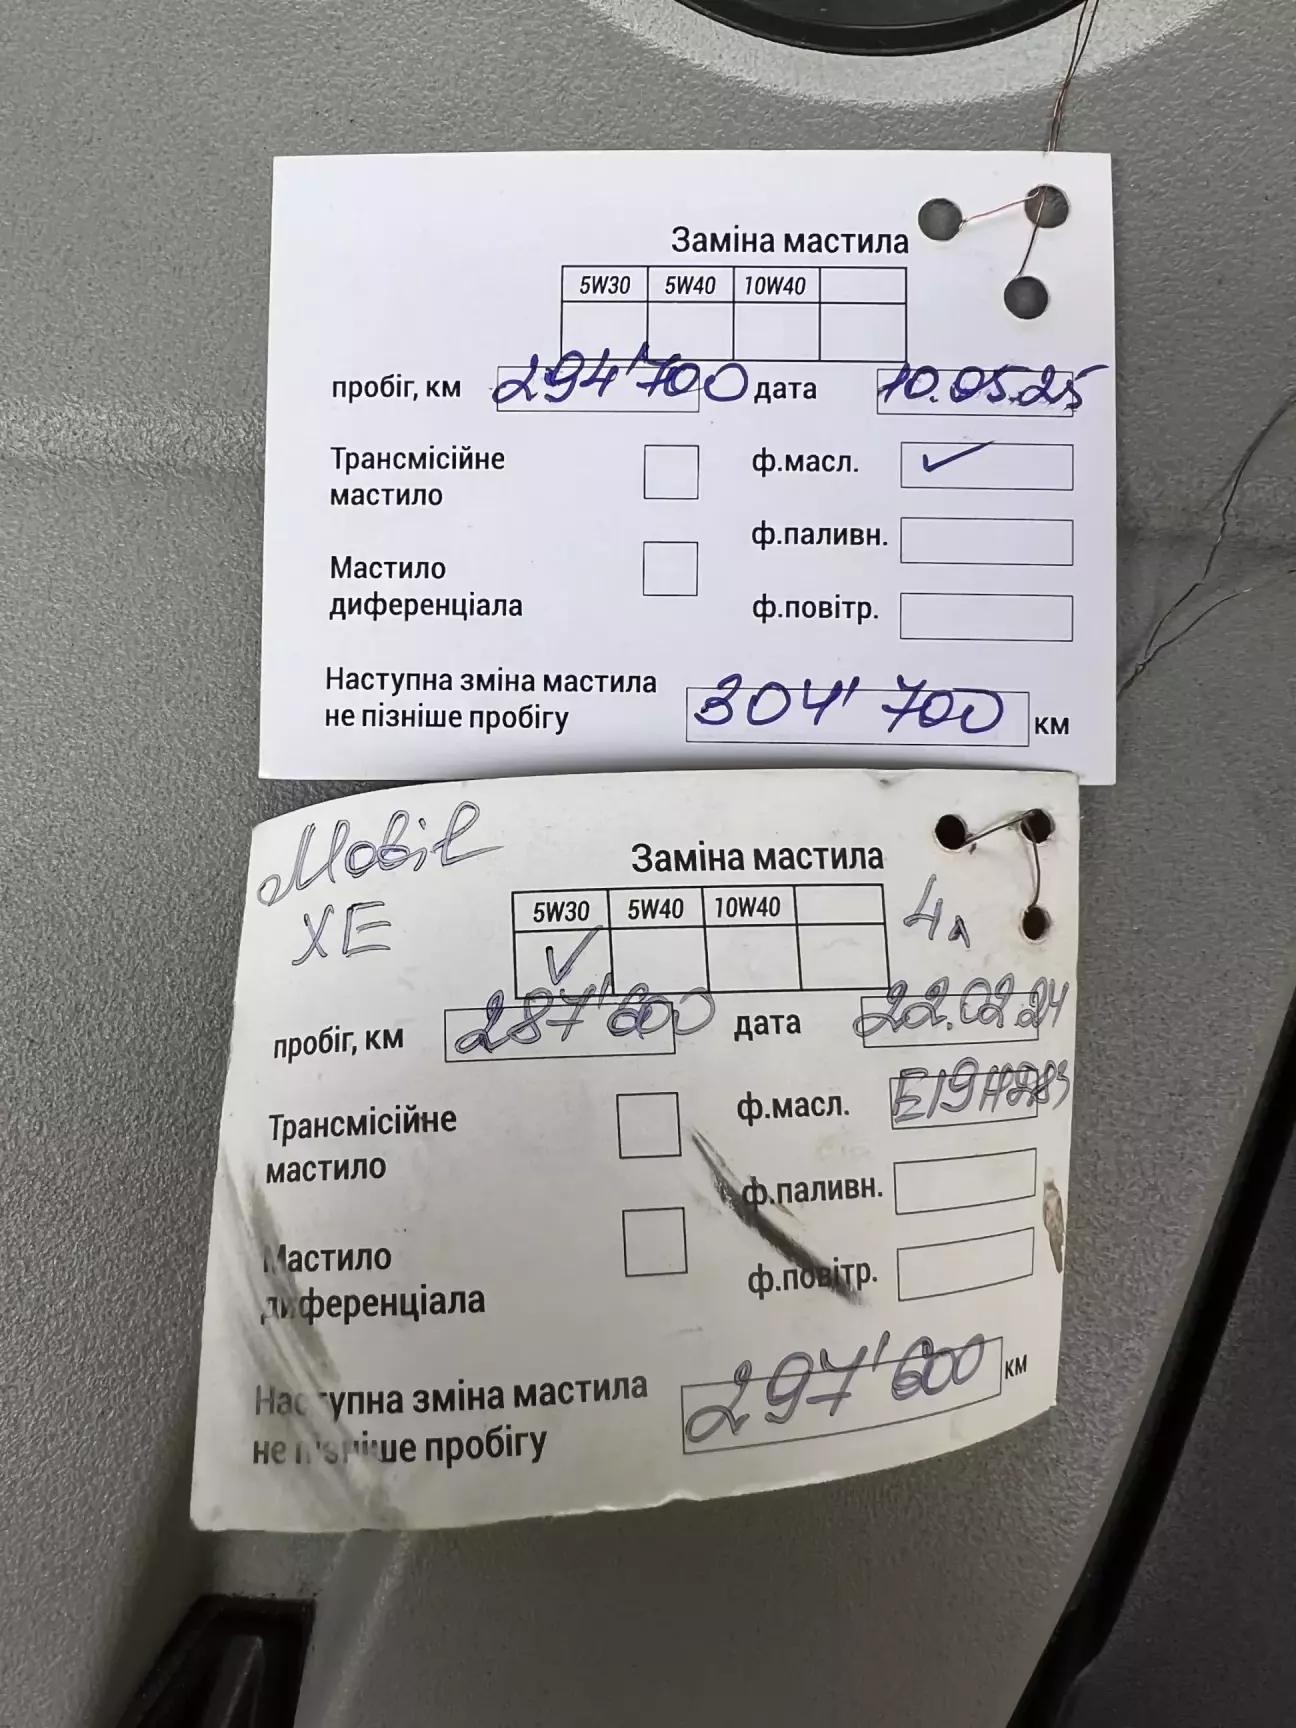 Заміна мастила
5W30 5W40 10W40
пробіг, км 294'700 дата 10.05.25
Трансмісійне мастило ф.масл. ✓
ф.паливн.
Мастило диференціала
ф.повітр.
Наступна зміна мастила
не пізніше пробігу 304'700 км
Mobil
XE
Заміна мастила
5W30 5W40 10W40
✓
4л
пробіг, км 287'600 дата 22.02.24
Трансмісійне мастило ф.масл.
ф.паливн.
Мастило диференціала
ф.повітр.
Наступна зміна мастила
не пізніше пробігу 297'600 км